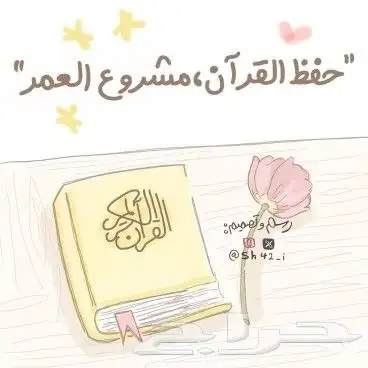 "حفظ القرآن، مشروع العمر"
القرآن الكريم
رسم وتصميم:
@Sh42_i
حراج